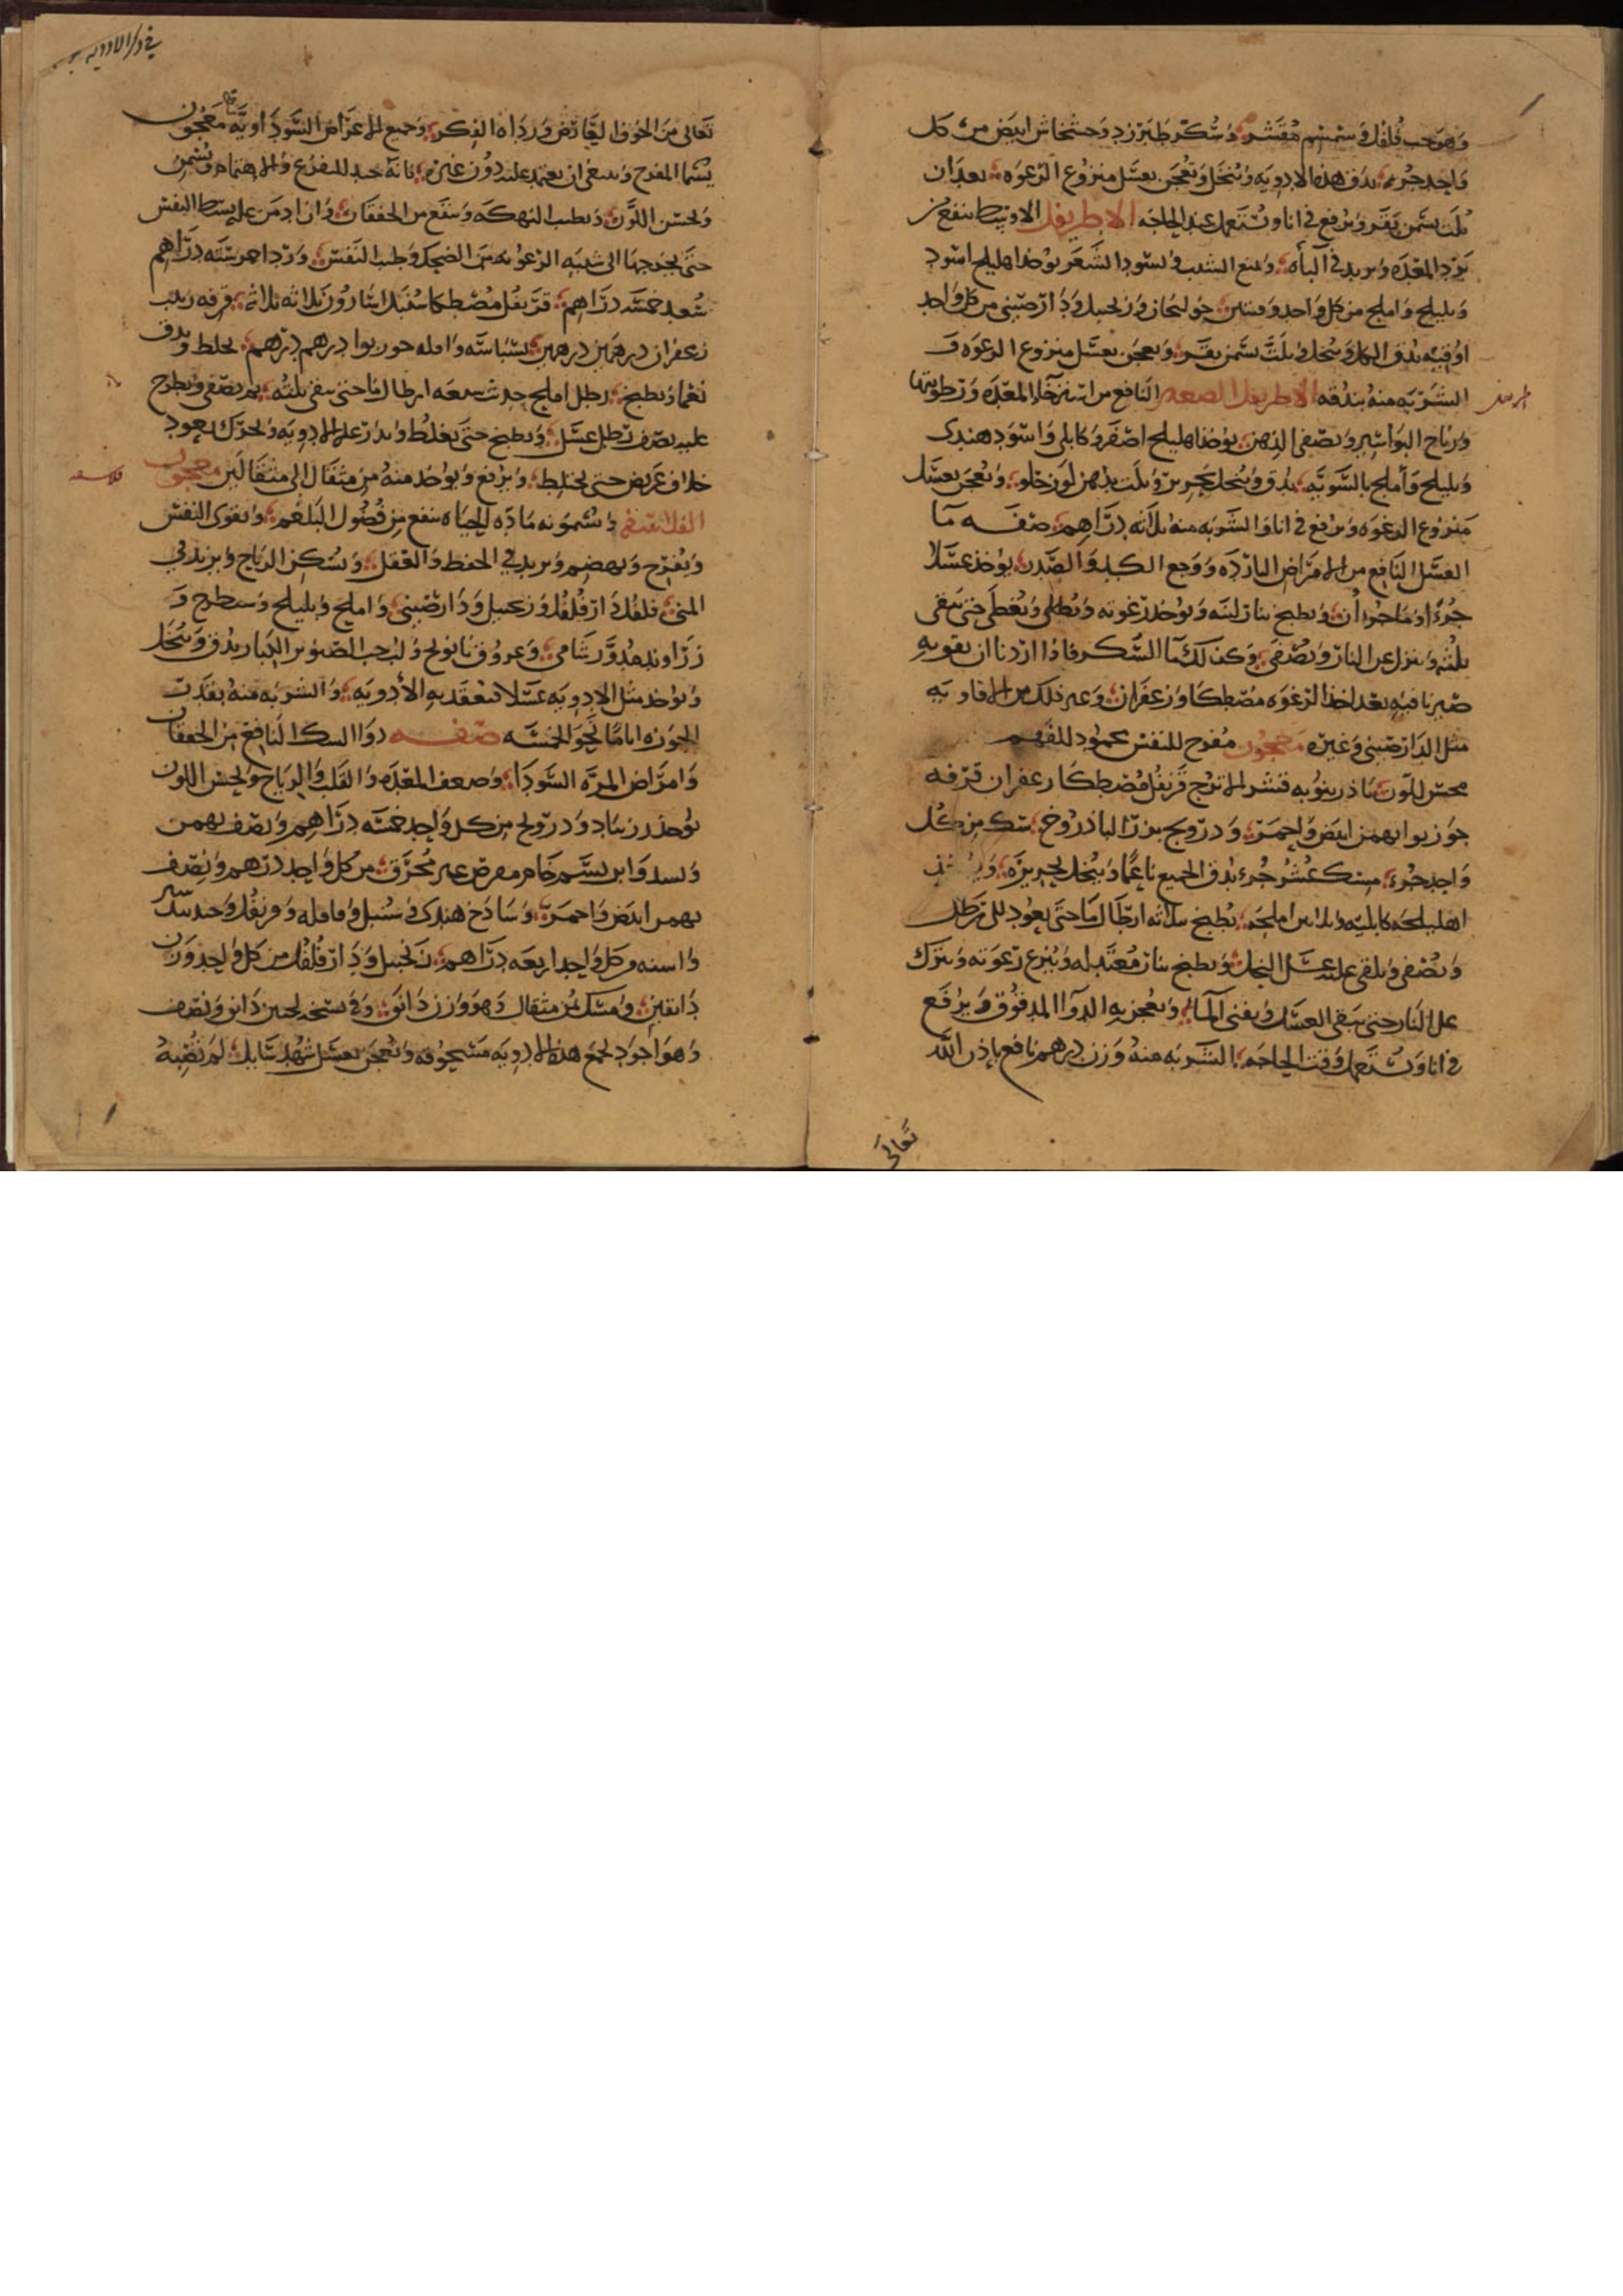 وهو حب فلفل وسمسم مقشر وسكر طبرزد وخشخاش ابيض من كل
واحد جزء يدق هذه الادويه وتنخل وتعجن بعسل منزوع الرغوه بعد ان
تلت بسمن بقر وترفع في انا وتستعمل عند الحاجه الاطريفل الاوسط ينفع من
برد المعده ويزيد في الباه ويمنع الشيب ويسود الشعر يوخذ اهليلج اسود
وبليلج واملج من كل واحد وقيتين خولنجان وزنجبيل ودارصيني من كل واحد
اوقيه يدق الكل وينخل ويلت بسمن بقر ويعجن بعسل منزوع الرغوه
الشربه منه بندقه الاطريفل الصغير النافع من استرخاء المعده ورطوبتها
ورياح البواسير ويصفي الذهن يوخذ اهليلج اصفر وكابلي واسود هندي
وبليلج واملج بالسويه يدق وينخل بحرير ويلت بدهن لوز حلو ويعجن بعسل
منزوع الرغوه ويرفع في انا والشربه منه ثلاثه دراهم صفه ما
العسل النافع من الامراض البارده ووجع الكبد والصدر يوخذ عسلا
جزءا وما جزءان ويطبخ بنار لينه ويوخذ رغوته ويغطى حتى يبقى
ثلثه وينزل عن النار ويصفى وكذلك ما السكر فاذا اردنا ان نقويه
صيرنا فيه بعد اخذ الرغوه مصطكا وزعفران وغير ذلك من الافاويه
مثل الدارصيني وغيره معجون مفرح للنفس محمود للفهم
محسن للون باذرنبويه قشر الاترج قرنفل مصطكا زعفران قرفه
جوزبوا بهمن ابيض واحمر ودرونج بزر الباذروج سك من كل
واحد جزء مسك عشر جزء يدق الجميع ناعما وينخل بحريره
اهليلجه كابليه املجه يطبخ بثلاثه ارطال ما حتى يعود الى رطل
ويصفى ويلقى عليه عسل النحل ويطبخ بنار معتدله وينزع رغوته ويترك
على النار حتى يبقى العسل ويفنى الماء ويعجن به الدوا المدقوق ويرفع
في انا ويستعمل وقت الحاجه الشربه منه وزن درهم نافع باذن الله
تعالى
في ذكر الادويه
تعالى من الخوف العارض ورداه الفكر وجميع الاعراض السوداويه معجون
يسما المفرح وينبغي ان يعتمد عليه دون غيره فانه جيد للفزع والاهتمام ويسمن
ويحسن اللون ويطيب النهكه وينفع من الخفقان وان ادمن عليه بسط النفس
حتى يخرجها الى شبيه الرعونه من الضحك وطيب النفس ورد احمر سته دراهم
سعد خمسه دراهم قرنفل مصطكا سنبل اسارون ثلاثه ثلاثه قرفه زرنب
زعفران درهمين درهمين بسباسه وقاقله جوزبوا درهم درهم يخلط ويدق
نعما ويطبخ رطل املج حديث بسبعه ارطال ما حتى يبقى ثلثه ثم يصفى ويطرح
عليه نصف رطل عسل ويطبخ حتى يغلظ ويذر عليه الادويه ويحرك بعود
خلاف عريض حتى يختلط ويرفع ويوخذ منه من مثقال الى مثقالين معجون
الفلاسفه ويسمونه ماده الحياه ينفع من فضول البلغم ويقوي النفس
ويفرح ويهضم ويزيد في الحفظ والعقل ويسكن الرياح ويزيد في
المني فلفل دارفلفل وزنجبيل ودارصيني واملج وبليلج وسطرج و
زراوند مدور شامي وعروق بابونج ولب حب الصنوبر الكبار يدق وينخل
ويوخذ مثل الادويه عسلا تنعقد به الادويه والشربه منه بقدر
الجوزه اياما نحو الخمسه صفه دوا المسك النافع من الخفقان
وامراض المره السودا وضعف المعده والقلب والرياح ويحسن اللون
يوخذ زرنباد ودرونج من كل واحد خمسه دراهم ونصف بهمن
وبسد وابريسم خام مقرض غير محرق من كل واحد درهم ونصف
بهمن ابيض واحمر وساذج هندي وسنبل وقاقله وقرنفل وجندبيدستر
واسنه من كل واحد اربعه دراهم زنجبيل ودارفلفل من كل واحد وزن
دانقين ومسك ثمن مثقال وهو وزن دانق وفي نسخه لحنين دانق ونصف
وهو اجود تجمع هذه الادويه مسحوقه وتعجن بعسل شهد سايل لم تصبه